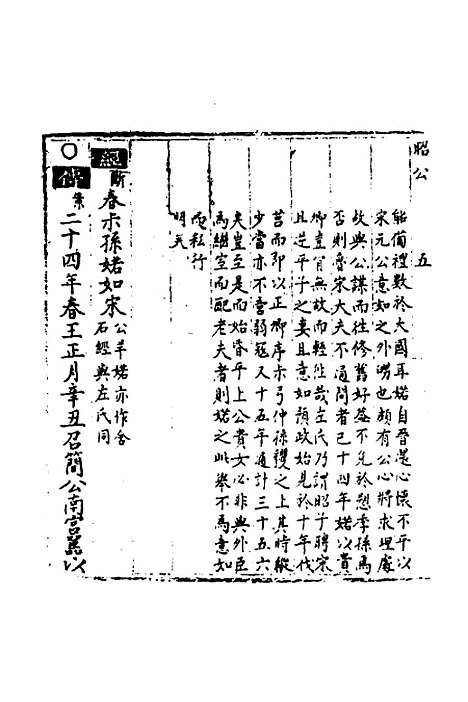 昭公 五
能備禮數於大國耳婼自晉還心懷不平以
宋元公意如之外甥也頗有公心將求理處
故與公謀而往修舊好葢不免於愬季孫焉
否則魯宋大夫不通問者已十四年婼以貴
卿豈肯無故而輕徃哉左氏乃謂昭子聘宋
且逆平子之妻且意如預政始見於十年伐
莒而即以正卿序于弓仲孫貜之上其時縱
少當亦不啻弱冠又十五年通計三十五六
矣豈至是而始昏乎上公貴女必非與外臣
爲繼室而配老夫者則婼之此舉不爲意如
而私行
明矣
經 斷 春叔孫婼如宋 公羊婼亦作舍
石經與左氏同
○傳 集 二十四年春王正月辛丑召簡公南宮嚚以